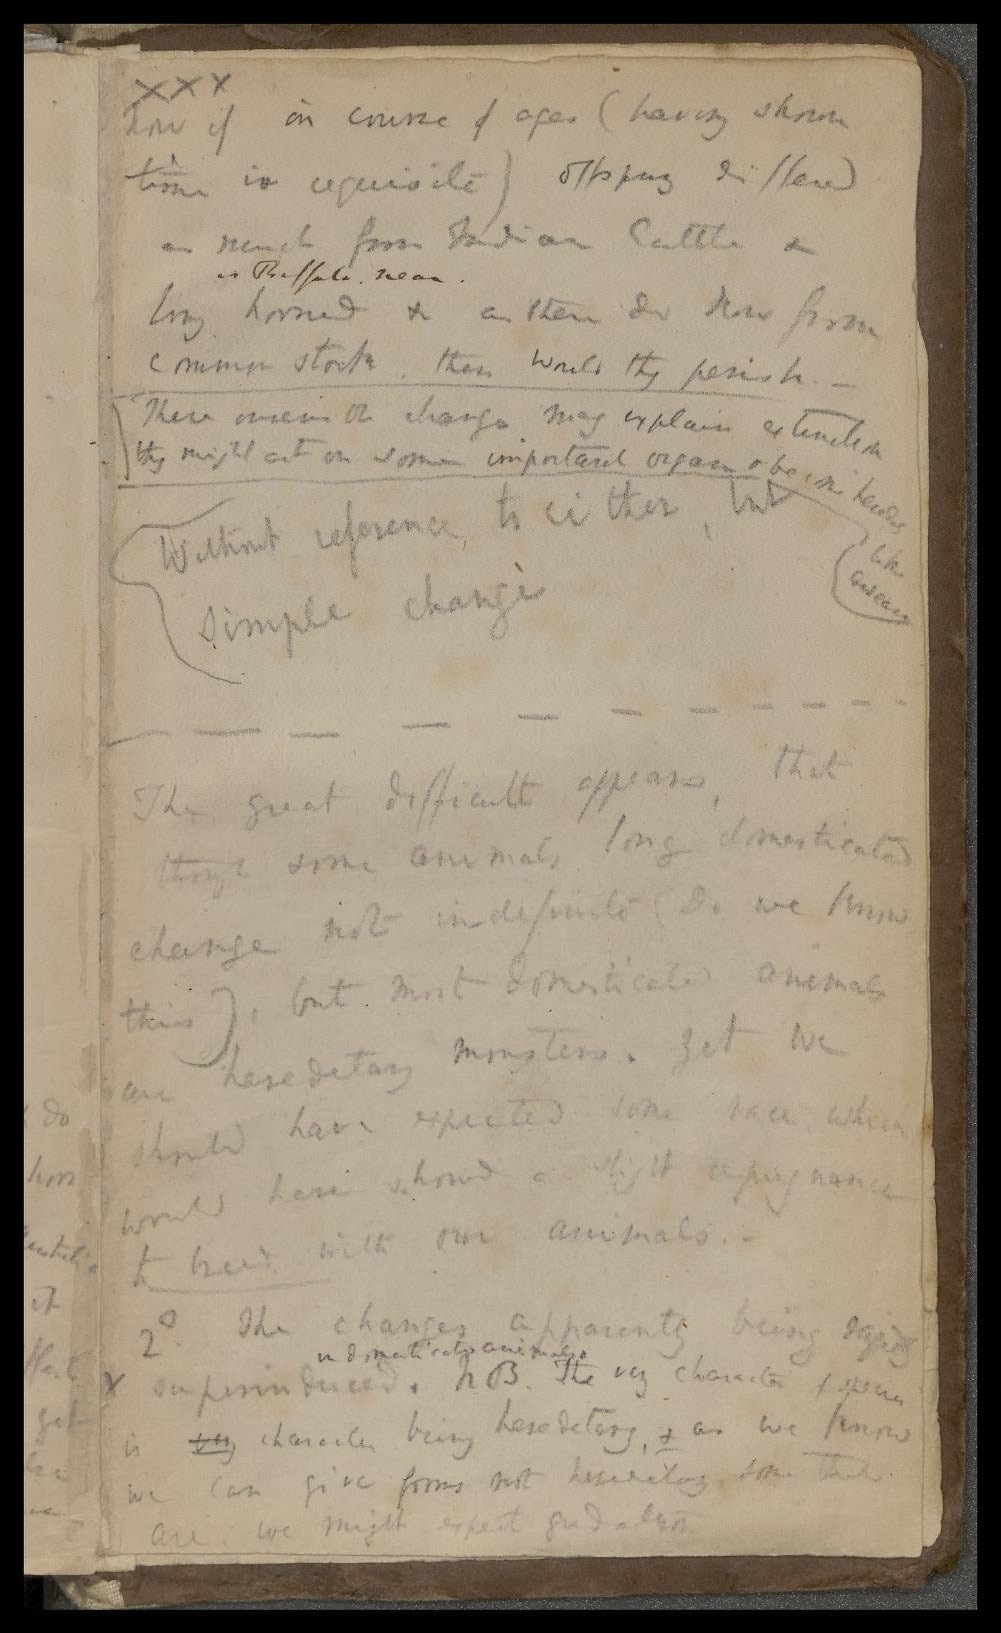 XXX
now if in course of ages (having shown
time is requisite) offspring differed
as much from Indian Cattle &
as Buffalo. near.
long horned & as these do now from
common stock, then would they perish. —
These unseen changes may explain extinction
they might act on some important organ & become hered
like
disease
Without reference, to either, but
simple change
The great difficult appears, that
though some animals long domesticated
change not indefinite (Do we know
this), but most domesticated animals
are hereditary monsters. Yet we
should have expected some race which
would have showed a slight repugnance
to breed with our animals. —
2d The changes apparently being
in domesticated animals
X superinduced. NB. The very character of species
is very character being hereditary, & as we know
we can give forms not hereditary some that
are we might expect gradation
do
hors
it
get